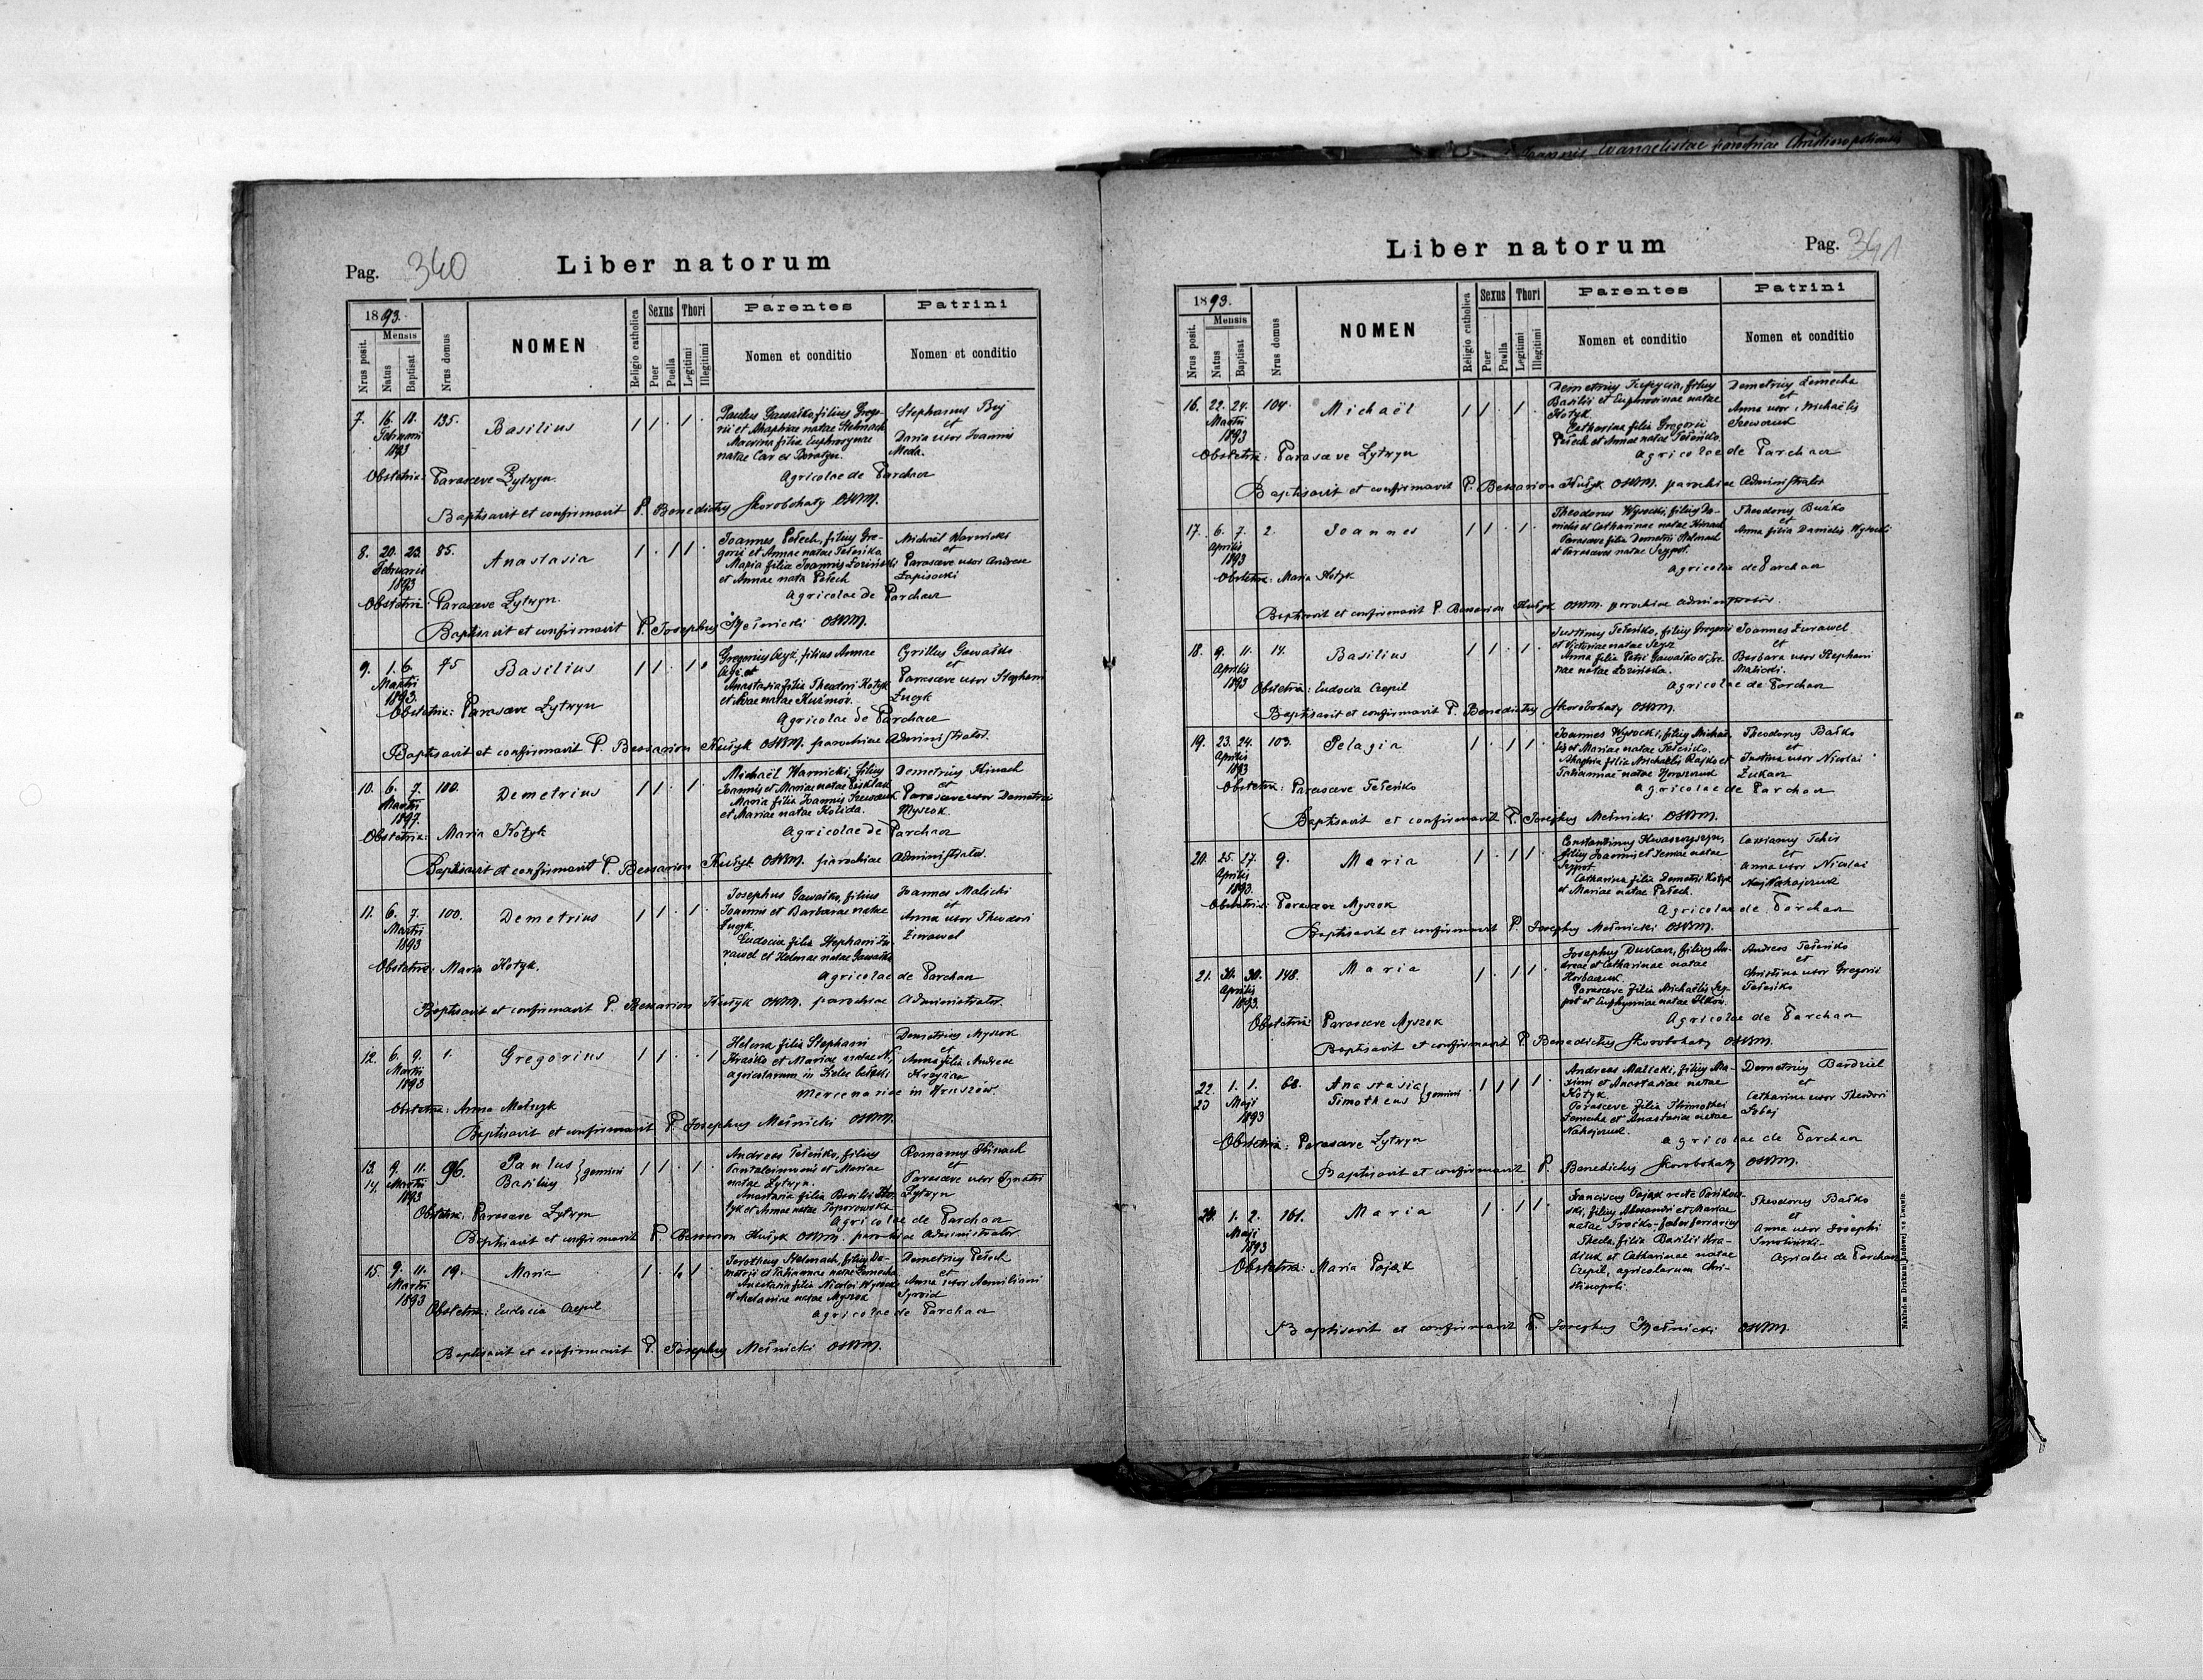 Joannis Evangelistae parochiae Christinopoliensis
Pag. 340
Liber natorum
1893.
Nrus posit.
Mensis
Natus
Baptisat
Nrus domus
NOMEN
Religio catholica
Sexus
Puer
Puella
Thori
Legitimi
Illegitimi
Parentes
Nomen et conditio
Patrini
Nomen et conditio
7. 16. 18. 135. Basilius 1 1 . 1 .
Februarii
1893
Paulus Gawałko, filius Grego-
rii et Ahaphiae natae Stelmach
Macrina filia Euphrosynae
natae Car ex Boratyn.
Stephanus Buj
et
Daria uxor Joannis
Meda.
Agricolae de Parchacz
Obstetrix: Parasceve Łytwyn.
Baptisavit et confirmavit P. Benedictus Skorobohaty OSBM.
8. 20. 23. 85. Anastasia 1 . 1 1 .
Februarii
1893
Joannes Pełech, filius Gre-
gorii et Annae natae Teteńko
Maria filia Joannis Łoziński
et Annae nata Pełech
Michaël Warnicki
et
Parasceve uxor Andreae
Łapisocki
Agricolae de Parchacz
Obstetrix: Parasceve Łytwyn.
Baptisavit et confirmavit P. Josephus Mełnicki OSBM.
9. 1. 6. 75 Basilius 1 1 . 1 .
Martii
1893.
Gregorius Czyż, filius Annae
Czyż et
Anastasia filia Theodori Kotyk
et Evae natae Kuśmów.
Cyrillus Gawałko
et
Parasceve uxor Stephani
Łucyk
Agricolae de Parchacz
Obstetrix: Parasceve Łytwyn
Baptisavit et confirmavit P. Bessarion Kułyk OSBM. parochiae Administrator.
10. 6. 7. 100. Demetrius 1 1 . 1 .
Martii
1897.
Michaël Warnicki, filius
Joannis et Mariae natae
Maria filia Joannis Szewczuk
et Mariae natae Kolida.
Demetrius Kinach
et
Parasceve uxor Demetrii
Myszok.
Agricolae de Parchacz
Obstetrix: Maria Kotyk
Baptisavit et confirmavit P. Bessarion Kułyk OSBM. parochiae Administrator.
11. 6. 7. 100. Demetrius 1 1 . 1 .
Martii
1893
Josephus Gawałko, filius
Joannis et Barbarae natae
Łucyk.
Eudocia filia Stephani Żu-
rawel et Helenae natae Gawałko
Joannes Malicki
et
Anna uxor Theodori
Żurawel
Agricolae de Parchacz
Obstetrix: Maria Kotyk.
Baptisavit et confirmavit P. Bessarion Kułyk OSBM. parochiae Administrator.
12. 6. 9. 1. Gregorius 1 1 . . 1
Martii
1893
Helena filia Stephani
Hrasko et Mariae natae N.,
agricolarum in Sielec bełzki
Demetrius Myszok
et
Anna filia Andreae
Mercenariae in Hruszów.
Obstetrix: Anna
Baptisavit et confirmavit P. Josephus Mełnicki OSBM.
13. 9. 11. 96. Paulus } gemini 1 1 . 1 .
14. Martii Basilius
1893
Andreas Teteńko, filius
Pantaleimonis et Mariae
natae Łytwyn.
Anastasia filia Basilii Ko-
tyk et Annae natae Toporowska
Romanus Kinach
et
Parasceve uxor Ignatii
Łytwyn
Agricolae de Parchacz
Obstetrix: Parasceve Łytwyn
Baptisavit et confirmavit P. Bessarion Kułyk OSBM. parochiae Administrator
15. 9. 11. 19. Maria 1 . 1 1 .
Martii
1893
Dorotheus Stelmach, filius De-
metrii et Tatiannae natae Łemecha
Anastasia filia Nicolai Wysocki
et Melaniae natae Myszok
Demetrius Pełech
et
Anna uxor Aemiliani
Syroid
Agricolae de Parchacz
Obstetrix: Eudocia Czepil
Baptisavit et confirmavit P. Josephus Mełnicki OSBM.
Liber natorum
Pag. 341
1893.
Nrus posit.
Mensis
Natus
Baptisat
Nrus domus
NOMEN
Religio catholica
Sexus
Puer
Puella
Thori
Legitimi
Illegitimi
Parentes
Nomen et conditio
Patrini
Nomen et conditio
16. 22. 24. 104. Michaël 1 1 . 1 .
Martii
1893
Demetrius, filius
Basilii et Euphrosinae natae
Kotyk.
Catharina filia Gregorii
Pełech et Annae natae Teteńko.
Demetrius Łemecha
et
Anna uxor Michaëlis
Szewczuk
Agricolae de Parchacz
Obstetrix: Parasceve Łytwyn
Baptisavit et confirmavit P. Bessarion Kułyk OSBM. parochiae Administrator
17. 6. 7. 2. Joannes 1 1 . 1 .
Aprilis
1893
Theodorus Wysocki, filius Da-
nielis et Catharinae natae Kinach
Parasceve filia Demetrii Stelmach
et Parasceves natae Sczypot.
Theodorus Buśko
et
Anna filia Danielis Wysocki
Agricolae de Parchacz
Obstetrix: Maria Kotyk
Baptisavit et confirmavit P. Bessarion Kułyk OSBM. parochiae Administrator.
18. 9. 11. 14. Basilius 1 1 . 1 .
Aprilis
1893
Justinus Teteńko, filius Gregorii
et Victoriae natae
Anna filia Petri Gawałko et Ire-
nae natae Łozińska.
Joannes Żurawel
et
Barbara uxor Stephani
Malicki.
Agricolae de Parchacz
Obstetrix: Eudocia Czepil
Baptisavit et confirmavit P. Benedictus Skorobohaty OSBM.
19. 23. 24. 103. Pelagia 1 . 1 1 .
Aprilis
1893
Joannes Wysocki, filius Michaë-
lis et Mariae natae Teteńko.
Ahaphia filia Michaëlis Rajko et
Tatiannae natae
Theodorus Bałko
et
Justina uxor Nicolai
Żukan
Agricolae de Parchacz
Obstetrix: Parasceve Teteńko
Baptisavit et confirmavit P. Josephus Mełnicki OSBM.
20. 25. 27. 9. Maria 1 . 1 1 .
Aprilis
1893.
Constantinus
filius Joannis et Xeniae natae
Sczypot.
Catharina filia Demetrii Kotyk
et Mariae natae Pełech.
Cassianus
et
Anna uxor Nicolai
Agricolae de Parchacz
Obstetrix: Parasceve Myszok
Baptisavit et confirmavit P. Josephus Mełnicki OSBM.
21. 30. 30. 148. Maria 1 . 1 1 .
Aprilis
1893.
Josephus, filius An-
dreae et Catharinae natae
Horbaczuk.
Parasceve filia Michaëlis Sczy-
pot et Euphymiae natae Ilków.
Andreas Teteńko
et
Christina uxor Gregorii
Teteńko
Agricolae de Parchacz
Obstetrix: Parasceve Myszok
Baptisavit et confirmavit P. Benedictus Skorobohaty OSBM.
22. 1. 1. 68. Anastasia } gemini 1 1 1 1 .
23 Maji Timotheus
1893
Andreas Malicki, filius Ma-
ximi et Anastasiae natae
Kotyk.
Parasceve filia Thimothei
Łemecha et Anastasiae natae
Nahajczuk.
Demetrius Bardziel
et
Catharina uxor Theodori
Sobej
Agricolae de Parchacz
Obstetrix: Parasceve Łytwyn
Baptisavit et confirmavit P. Benedictus Skorobohaty OSBM.
24. 1. 2. 161. Maria 1 . 1 1 .
Maji
1893
Franciscus Pająk recte Pańkow-
ski, filius Alexandri et Mariae
natae Troćko - faber ferrarius
Thecla, filia Basilii Hra-
diuk et Catharinae natae
Czepil, agricolarum Chri-
stinopoli.
Theodorus Bałko
et
Anna uxor Josephi
Smoliński
Agricolae de Parchacz
Obstetrix: Maria Pająk
Baptisavit et confirmavit P. Josephus Mełnicki OSBM.
Nakładem Drukarni Ludowej we Lwowie.